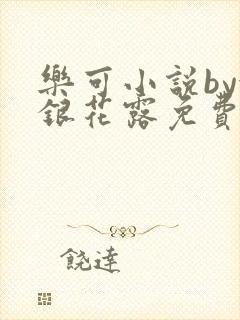 樂可小說by
銀花露免費
饒達